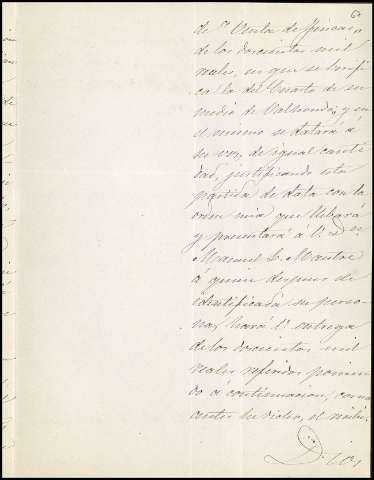 6
de Venta de fincas,
de los doscientos mil
reales, en que se benefi
ca la del Cuarto de en
medio de Valhondo; y en
el mismo se datará á
su vez, de igual canti
dad, justificando esta
partida de data con la
orden mia que llebará
y presentará á V. Dn
Manuel L. Mantre
á quien despues de
identificada su perso
na, hará V. entrega
de los doscientos mil
reales referidos ponien
do á continuacion, como
antes he dicho, el recibi.
Dios